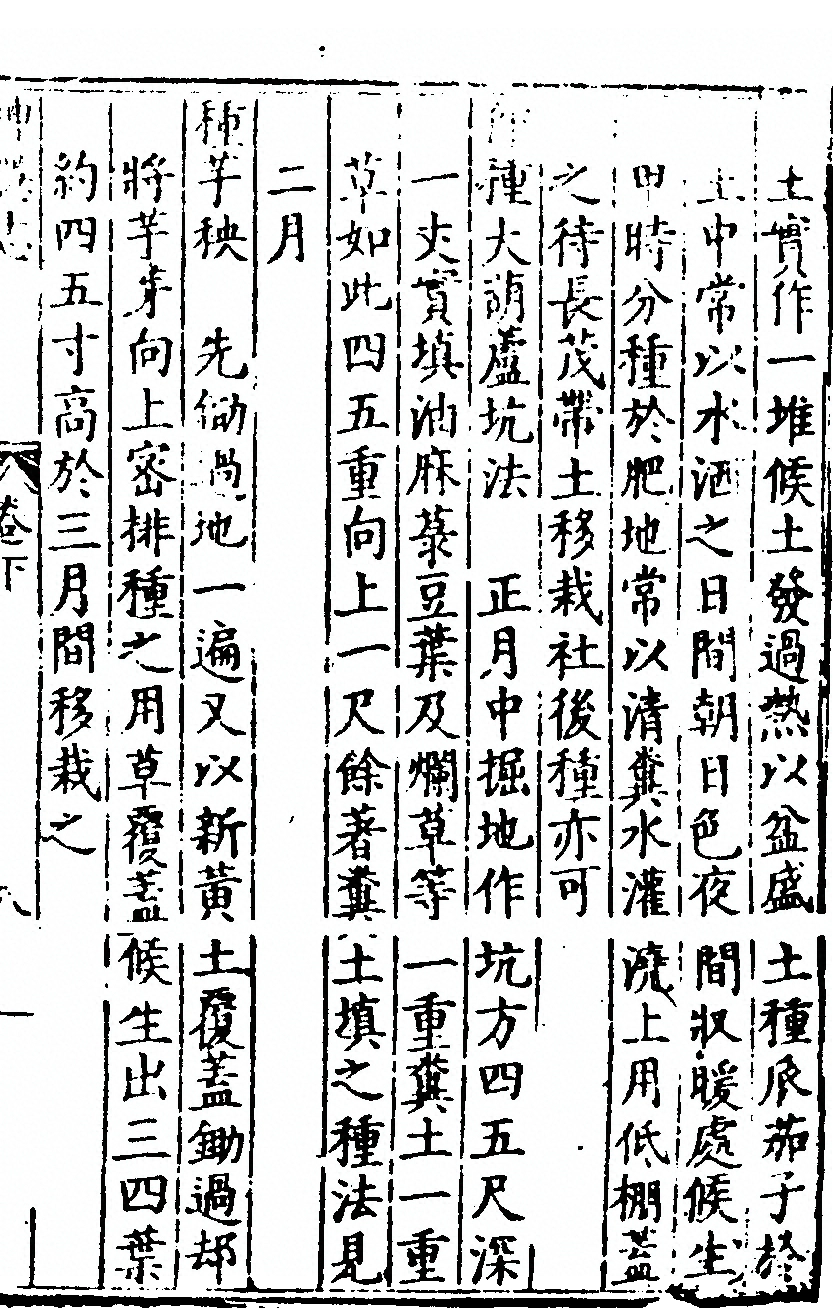 土實作一堆候土發過熱以盆盛土種瓜茄子於
土中常以水洒之日間朝日色夜間収暖處候生
甲時分種於肥地常以清糞水灌澆上用低棚蓋
之待長茂帶土移栽社後種亦可
種大葫蘆坑法　正月中掘地作坑方四五尺深
一丈實填油麻菉豆葉及爛草等一重糞土一重
草如此四五重向上一尺餘著糞土填之種法見
二月
種芋秧　先鋤過地一遍又以新黃土覆蓋鋤過却
將芋芽向上密排種之用草覆蓋候生出三四葉
約四五寸高於三月間移栽之
卷下